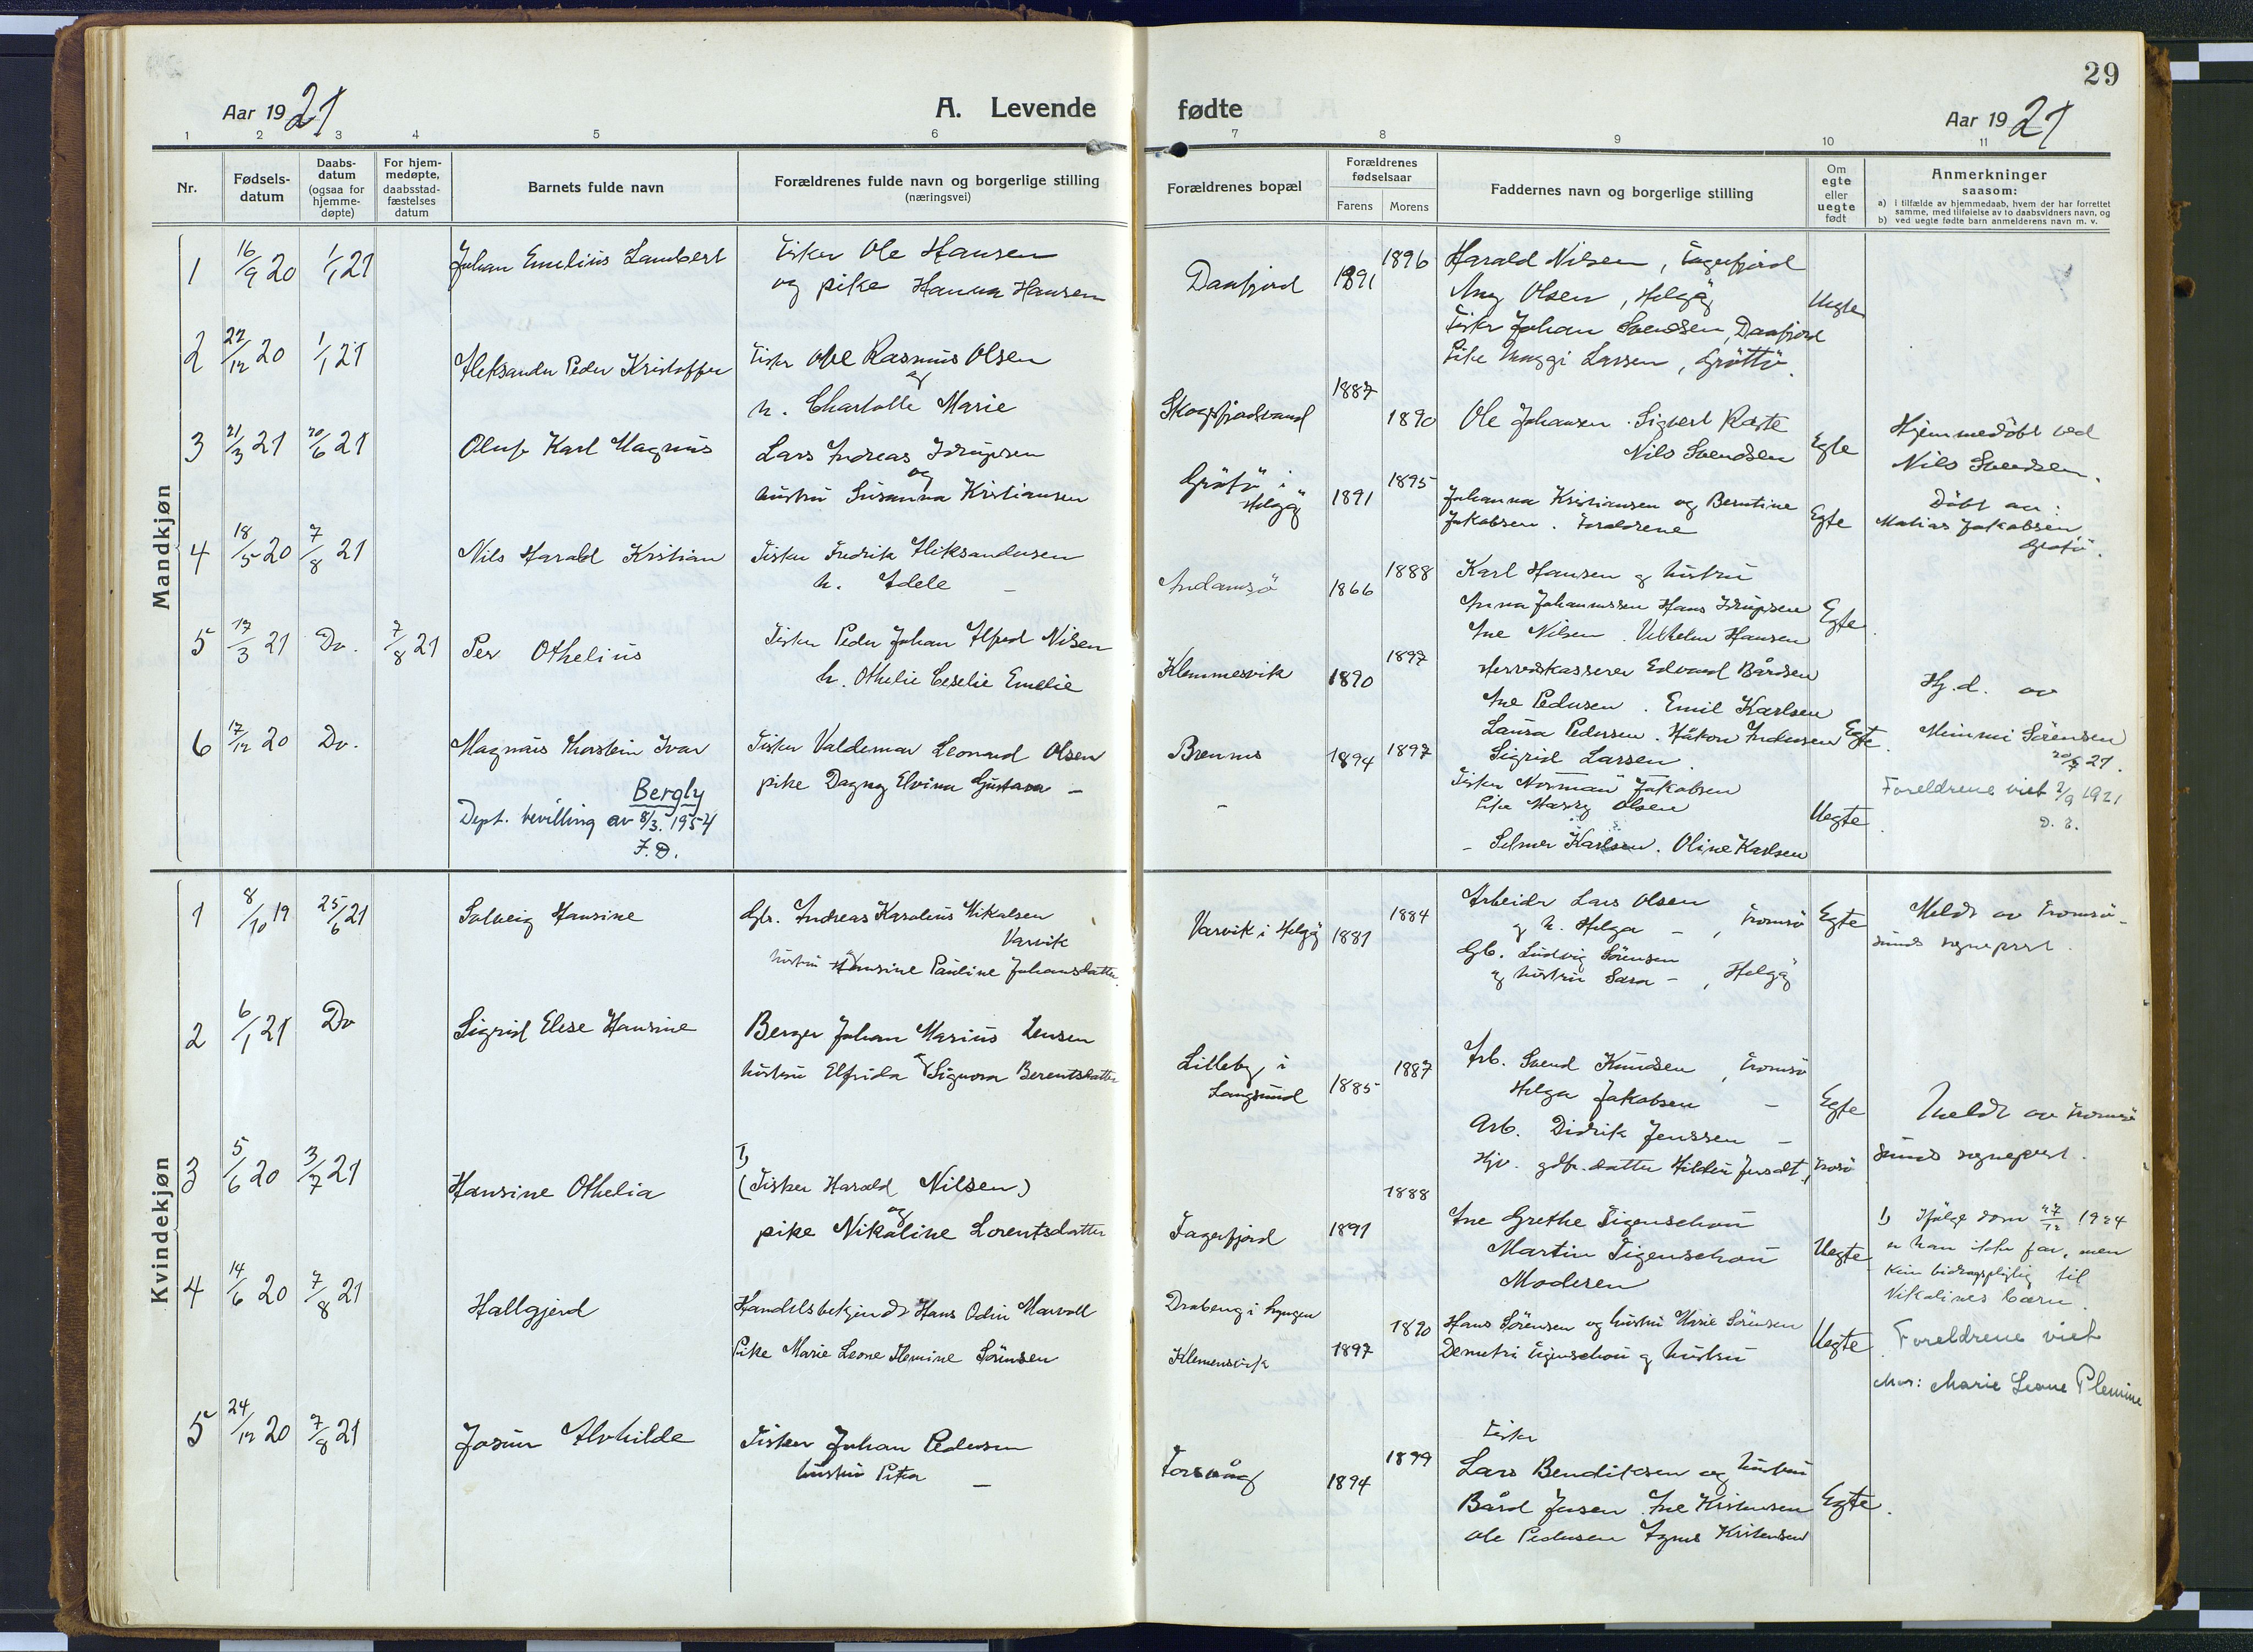 29
Aar 1921
A. Levende
fødte
Aar 1921
1 2 3 4 5 6 7 8 9 10 11
Nr.
Fødsels-
datum
Daabs-
datum
(ogsaa for
hjemme-
døpte)
For hjem-
medøpte,
daabsstad-
fæstelses
datum
Barnets fulde navn
Forældrenes fulde navn og borgerlige stilling
(næringsvei)
Forældrenes bopæl
Forældrenes
fødselsaar
Farens Morens
Faddernes navn og borgerlige stilling
Om
egte
eller
uegte
født
Anmerkninger
saasom:
a) I tilfælde av hjemmedaab, hvem der har forrettet
samme, med tilføielse av to daabsvidners navn, og
b) ved uegte fødte barn anmelderens navn m. v.
Mandkjøn
1 16/9 20 1/1 21 Johan Emelius Lambert Fisker Ole Hansen
og pike Hanna Hansen
Daafjord 1891 1896 Harald Nilsen, Fagerfjord
Olsen, Helgøy
Fisker Johan Svendsen, Daafjord
Pike Maggi Larsen, Grøttø.
Uegte
2 22/12 20 1/1 21 Aleksander Peder Kristoffer Fisker Ole Rasmus Olsen
og
h. Charlotte Marie
Skogsfjordvand 1887 1890 Ole Johansen. Sigvert Raste
Nils Svendsen Egte
Hjemmedöbt ved
Nils Svendsen.
3 21/3 21 20/6 21 Oluf Karl Magnus Lars Andreas Idrupsen
og
hustru Susanna Kristiansen
Gråtö i
Helgöy 1891 1895 Johanna Kristiansen og Berntine
Jakobsen. Foreldrene Egte
Döbt av:
Matias Jakobsen,
Gråtö.
4 18/5 20 7/8 21 Nils Harald Kristian Fisker Fredrik Aleksandersen
h. Adele –
Andamsö 1866 1888 Karl Hansen og hustru
Anna Johannessen Hans Idrupsen
Ane Nilsen. Vilhelm Hansen
Egte.
5 17/3 21 Do. 7/8 21 Per Othelius Fisker Peder Johan Alfred Nilsen
h. Othelie Ceselie Emelie
Klemmesvik 1890 1897 Herredskasserer Edvard Bårdsen
Ane Pedersen. Emil Karlsen
Laura Pedersen. Håkon Andersen Egte.
Sigrid Larsen.
Hj.d. av
Mimmi Sörensen
21.
6 17/12 20 Do. Magnus Thorstein Ivar Fisker Valdemar Leonard Olsen
pike Dagny Elvina Gustava –
Bergly
Dept. bevilling av 8/3. 1954
F.D.
Brennes 1894 1897
Fisker Norman Jakobsen
Pike Harry Olsen
– Selmer Karlsen. Oline Karlsen
Uegte.
Foreldrene viet 2/9 1921
Kvindekjøn
1 8/10 19 25/6 21 Solveig Hansine Gbr. Andreas Karolius Mikalsen
Varvik
hustru Hansine Pauline Johansdatter.
Varvik i Helgøy 1881 1884 Arbeider Lars Olsen
og h. Helga –, Tromsö
Gb. Ludvig Sörensen
og hustru Sara –, Helgöy
Egte
Meldt av Tromsö-
sunds sogneprest.
2 6/1 21 Do Sigrid Elese Hansine Berger Johan Marius Jensen
og
hustru Elfrida Signora Berentsdatter
Lilleby i
Langsund 1885 1887 Arb. Svend Knudsen, Tromsö
Helga Jakobsen –
Arb. Didrik Jenssen –
Egte
Meldt av Tromsö
sunds sogneprest.
3 5/6 20 3/7 21 Hansine Othelia 1)
(Fisker Harald Nilsen)
og
pike Nikoline Lorentsdatter
Fagerfjord 1891 1888 Ane Grethe Figenschou
Martin Figenschou
Moderen
Uegte
1) Ifølge dom 27/12 1924
er han ikke far, men
kun bidragspligtig til
Nikolines barn.
4 14/6 20 7/8 21 Hallgjerd Handelsbetjendt Hans Odin Marvoll
Pike Marie Leone Plemine Sörensen
Drabeng i Lyngen
Klemensvik 1897 1890 Hans Sörensen og hustru Marie Sörensen
Demetri Figenschou og hustru
Uegte.
Foreldrene viet
Mor: Marie Leone Plemine
5 24/12 20 7/8 21 Josun Alvhilde Fisker Johan Pedersen
hustru Petra –
Forsvåg 1894 1899 Fisker
Lars Bendiksen og hustru
Bård Jensen. Ane Kristensen
Ole Pedersen Agnes Kristensen
Egte.